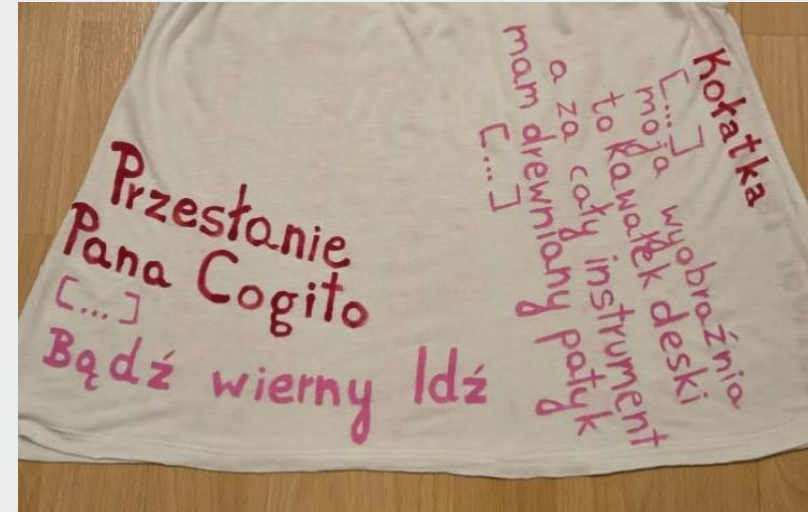 Przesłanie
Pana Cogito
[...]
Bądź wierny Idź
Kołatka
[...]
moja wyobraźnia
to kawałek deski
a za cały instrument
mam drewniany patyk
[...]